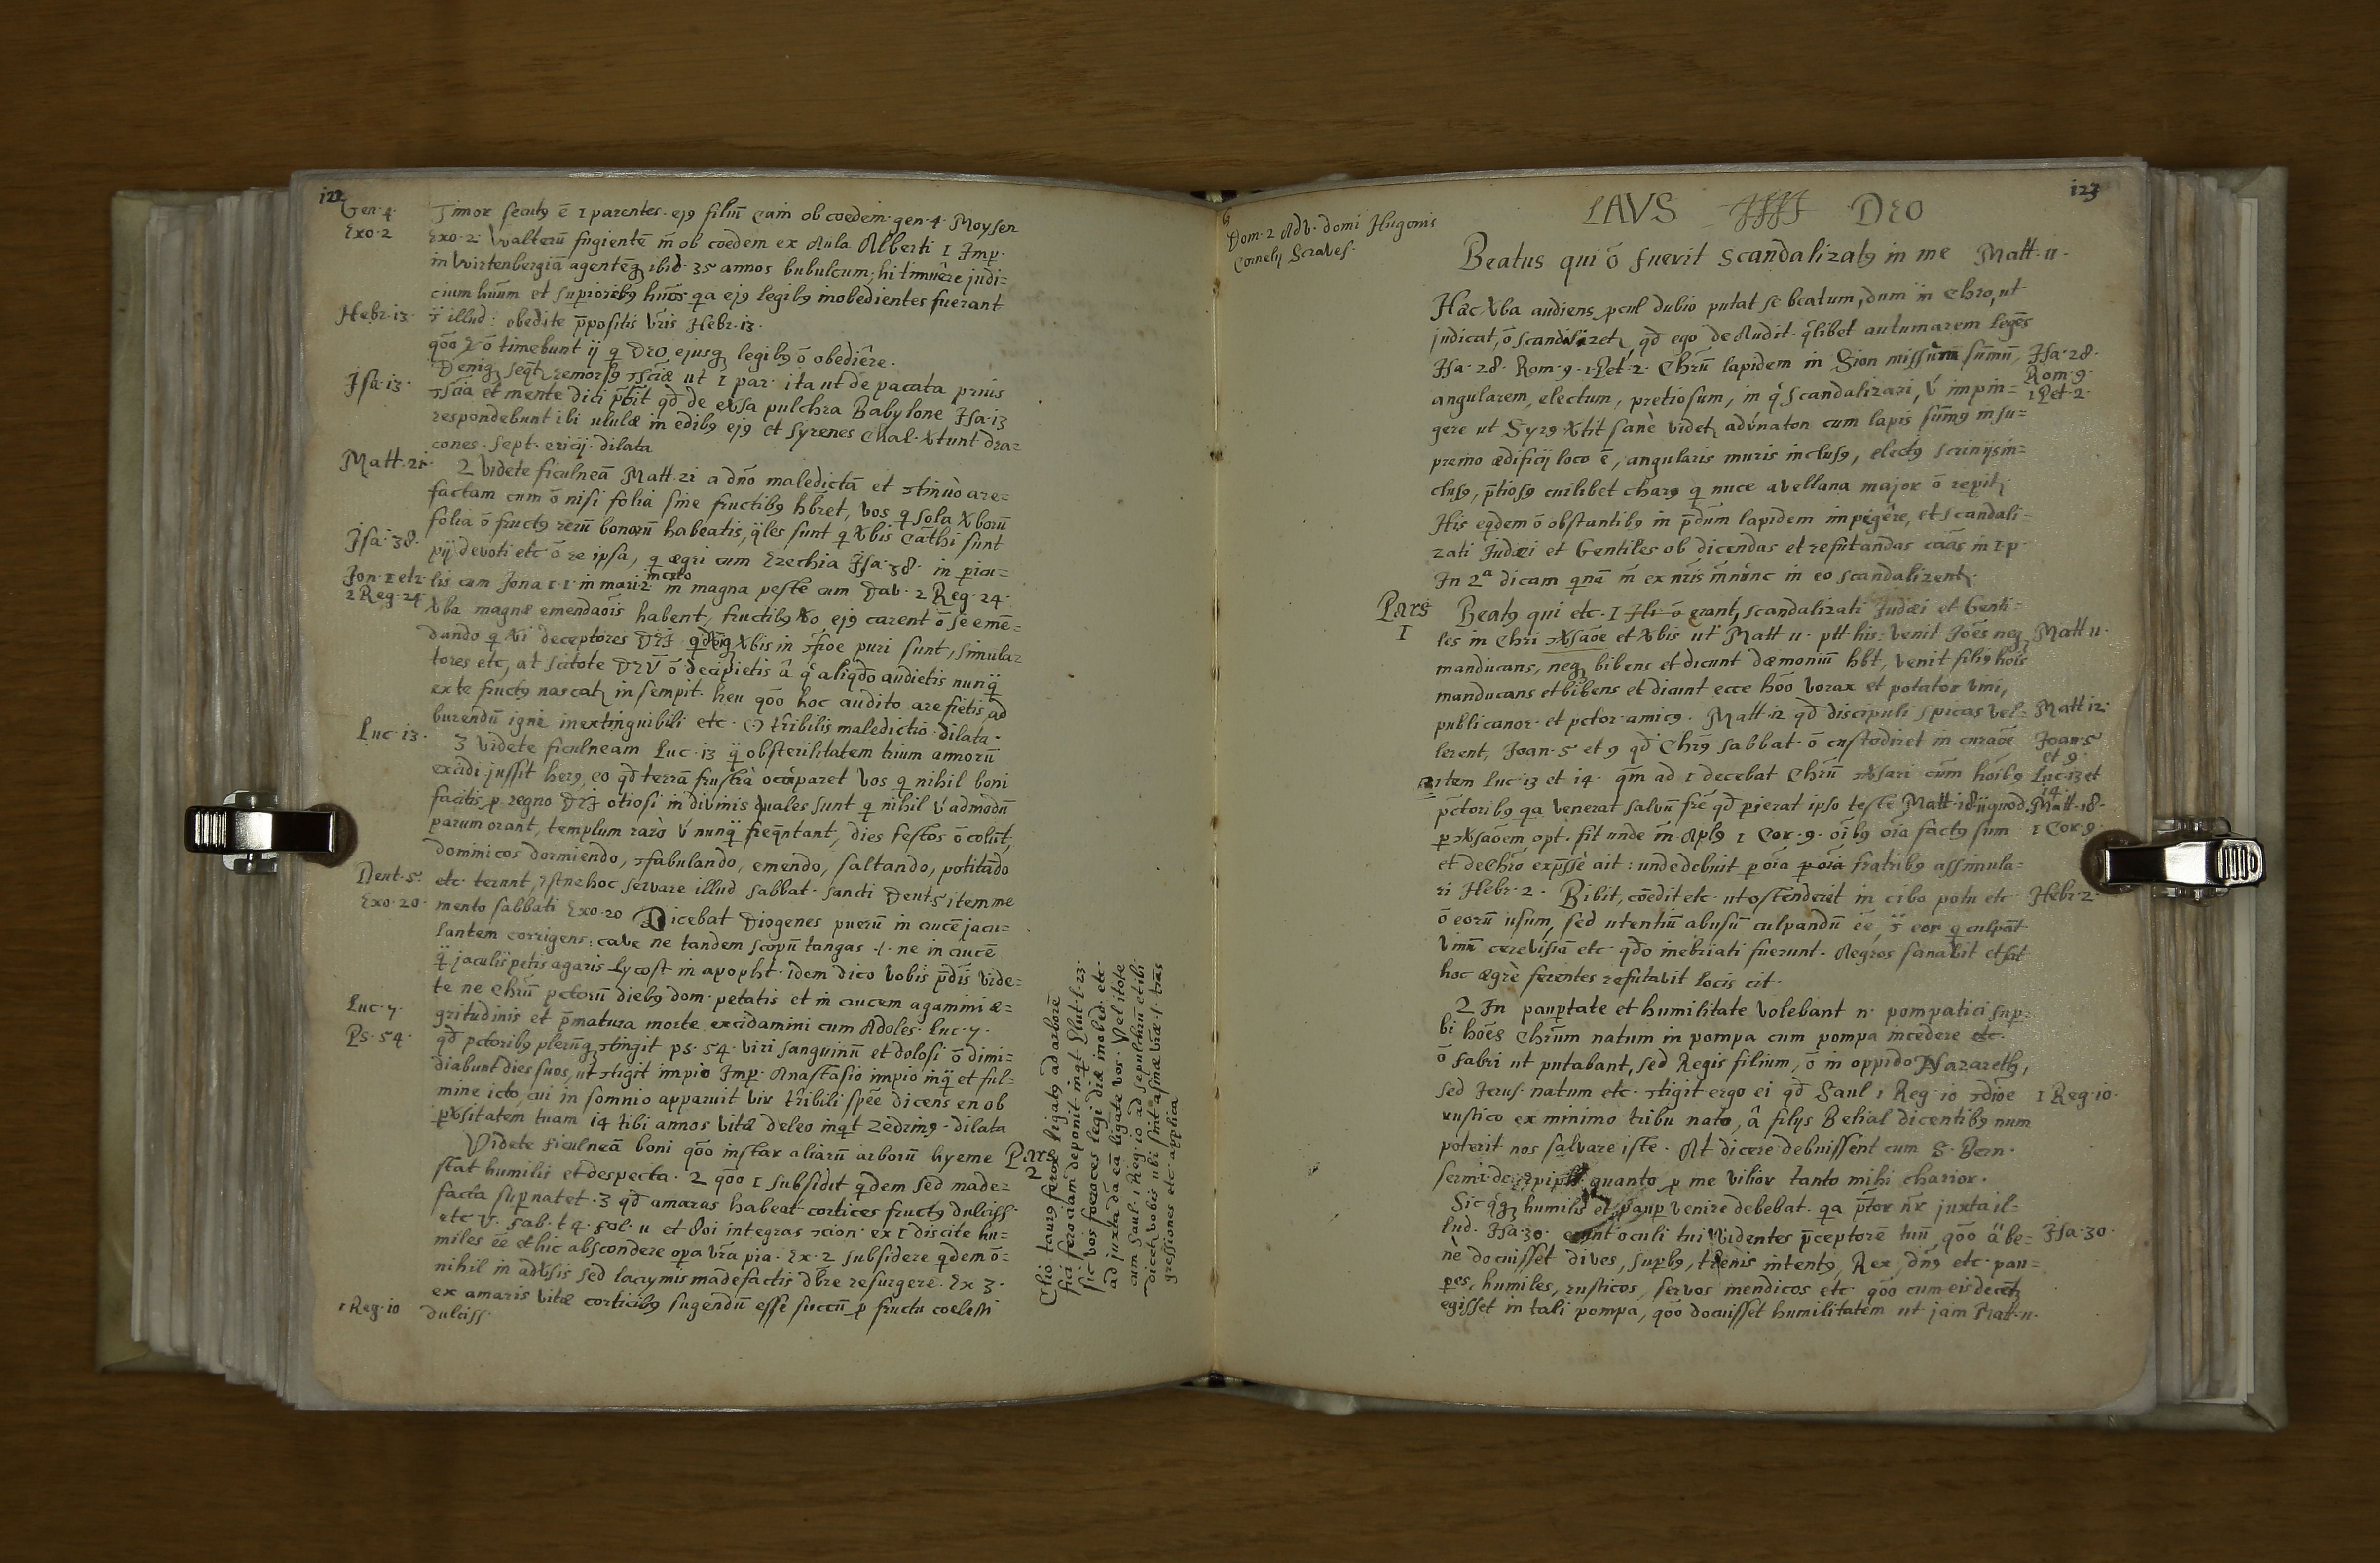 122
Gen·4· Timor secut9 ē 1 parentes· ej9 filiū Cain ob coedem· gen·4· Moysen
Exo·2 Exo·2· Walterū fugientē m̄ ob coedem ex Aula Alberti 1 Imp·
in Wirtenbergiā agentēq3 ibid· 35 annos bubulcum; hi timuêre judi=
cium hūm et supiorib9 hūōs qa ej9 legib9 inobedientes fuerant
Hebr·13· illud: obedite p̄positis vr̄is Hebr·13·
qōō ō timebunt ij q Deo ejusq3 legib9 ō obediêre·
Deniq3 seqt remors9 ɔsc̄iæ ut 1 par· ita ut de pacata prius
Isa·13· ɔsc̄ia et mente dici p̄t̄it qd̄ de evsa pulchra Babylone Isa·13
respondebunt ibi ululæ in edib9 ej9 et Syrenes Chal· Xtunt dra=
cones· sept· ericij· dilata
Matt·21· 2 Videte ficulneā Matt·21 a dn̄o maledictā et ɔtinùo are=
factam cum ō nisi folia sine fructib9 hb̄ret, vos q sola Xborū
folia ō fruct9 rerū bonorū habeatis, q̄les sunt q Xbis cat̄hi sunt
Isa·38· pij devoti etc ō re ipsa, q ægri cum Ezechia Isa·38· in picu=
Jon·1 et 2· lis cum Jona 1·1· in mari 2 in coeto in magna peste cum Dav· 2 Reg·24·
2 Reg·24· Xba magnæ emendaōis habent, fructib9 Xo ej9 carent ō se emē=
dando q Xi deceptores DEI Xbis in puri sunt, simula=
tores etc, at scitote DEŪ ō decipietis â q' aliqdo audietis nunq̄
ex te fruct9 nascat in sempit· heu qōō hoc audito arefietis ad
burendū igni inextinguibili etc· tribilis maledictio· dilata·
Luc·13· 3 Videte ficulneam Luc·13 q̄ ob sterilitatem trium annorū
excidi jussit her9, eo qd̄ terrā frustrà occuparet vos q nihil boni
facitis p regno DEI otiosi in divinis quales sunt q nihil v̄ admodū
parum orant, templum rarò v̄ nunq̄ freqn̄tant, dies festos ō colūt,
dominicos dormiendo, ɔfabulando, emendo, saltando, potitādo
Deut·5· etc terunt, Estne hoc servare illud sabbat· sancti Deut5 item me
Exo·20· mento sabbati Exo·20 Dicebat Diogenes puerū in crucē jacu=
lantem corrigens: cave ne tandem scopū tangas ·/· ne in crucē
q̄ jaculis petis agaris Lycost in apopht· idem dico vobis p̄dis vide=
te ne Chrū pctorū dieb9 dom· petatis et in crucem agamini æ=
Luc·7· gritudinis et p̄matura morte excidamini cum Adoles· Luc·7·
Ps·54· qd̄ pctorib9 plerūq3 ɔtingit ps·54· viri sanguinū et dolosi ō dimi=
diabunt dies suos, ut ɔtigit impio Imp· Anastasio impio inq̄ et ful=
mine icto, cui in somnio apparuit vir t̄ribili spēe dicens en ob
pXsitatem tuam 14 tibi annos vitæ deleo inqt Zedrin9· dilata
Videte ficulneā boni qōō instar aliarū arborū hyeme Pars 2
stat humilis et despecta· 2 qōō 1 subsidit qdem sed made=
facta supnatet· 3 qd̄ amaras habeat cortices fruct9 dulciss·
etc V· fab· t 4· fol· 11 et ibi integras ɔcion· ex 1 discite hu=
miles ēē et hic abscondere opa vr̄a pia· Ex 2 subsidere qdem ō=
nihil in advsis sed lacrymis madefactis db̄re resurgere· Ex 3·
ex amaris vitæ corticib9 sugendū esse succū p fructu coelesti
1 Reg·10 dulciss·
Elio taur9 ferox ligat9 ad arborē
fici feroc iam deponit inqt Plut· l·23·
sic vos feroaces legi diæ inobed· etc·
ad juxta dā eā ligate vos· Vel itote
cum Saul 1 Reg·10 ad sepulchrū et ibi
dicet vobis ubi sint asinæ vr̄æ ·/· trās
gressiones etc· applica
123
Dom·2 Adv· domi Hugonis
Cornelij Scraves·
LAVS DEO
Beatus qui ō fuerit scandalizat9 in me Matt·11·
Hæc Xba audiens pcul dubio putat se beatum, dum in Chro, ut
judicat, ō scandalizet, qd̄ ego de Audit· qlibet autumarem legēs
Isa·28· Rom·9·1 Pet·2· Chrū lapidem in Sion missūm sūmū, Isa·28·
angularem, electum, pretiosum, in q' scandalizari, v̄ impin= Rom·9· 1 Pet·2·
gere ut Syr9 Xtit sanè videt, adv́naton cum lapis sūm9 in su=
premo ædificij loco ē, angularis muris inclus9, elect9 scrinijs in=
clus9, p̄tios9 cuilibet char9 q nuce avellana major ō repit·
His eqdem ō obstantib9 in p̄dūm lapidem impigêre, et scandali=
zati Judæi et Gentiles ob dicendas et refutandas caās in 1·p·
In 2ª dicam qnā m̄ ex nr̄is m̄ nùnc in eo scandalizent·
Pars 1 Beat9 qui etc· 1 scandalizati Judæi et Genti=
les in Chri ɔXsaōe et Xbis ut Matt 11· ptt his: Venit Joēs neq3 Matt 11·
manducans, neq3 bibens et dicunt dæmoniū hb̄t, venit fili9 hoīs
manducans et bibens et dicunt ecce hōō vorax et potator vini,
publicanor· et pctor· amic9· Matt·12 qd̄ discipuli spicas vel= Matt 12·
lerent, Joan·5 et 9 qd̄ Chr9 sabbat· ō custodiret in curaōe Joan·5 et 9
item Luc·13 et 14· qm̄ ad 1 decebat Chrū ɔXsari cūm hoīb9 Luc·13 et 14·
pctorib9 qa venerat salvū frē qd̄ pierat ipso teste Matt·18 iiquod· Matt·18·
p ɔXsaōem opt· fit unde m̄ Apl9 1 Cor·9· oīb9 oīa fact9 sum 1 Cor·9·
et de Chro exp̄ssè ait: unde debuit p oīa p oīa fratrib9 assimula=
ri Hebr·2· Bibit, cōedit etc· ut ostenderet in cibo potu etc· Hebr·2·
ō eorū usum, sed utentiū abusū culpandū ēē, eor q culpāt
vinū cerevisiā etc· qdo inebriati fuerunt· Aegros sanavit et
hoc ægrè ferentes refutavit locis cit·
2 In pauptate et humilitate volebant n· pompatici sup·
bi hoēs Chrūm natum in pompa cum pompa incedere etc·
ō fabri ut putabant, sed Regis filium, ō in oppido Nazareth,
sed Jerus· natum etc· ɔtigit ergo ei qd̄ Saul 1 Reg·10 1 Reg·10·
rustico ex minimo tribu nato, â filijs Belial dicentib9 num
poterit nos salvare iste· At dicere debuissent cum S· Bern·
serm·1·de quanto p me vilior tanto mihi charior·
Sic humilis et paup venire debebat· qa p̄tor nr̄ juxta il=
lud· Isa·30· erunt oculi tui videntes p̄ceptorē tuū, qōō ä be= Isa·30·
nè docuisset dives, supb9, intent9, Rex, dn̄9 etc· pau=
pes, humiles, rusticos, servos mendicos etc· qōō cum eis decēt
egisset in tali pompa, qōō docuisset humilitatem ut jam Matt·11·